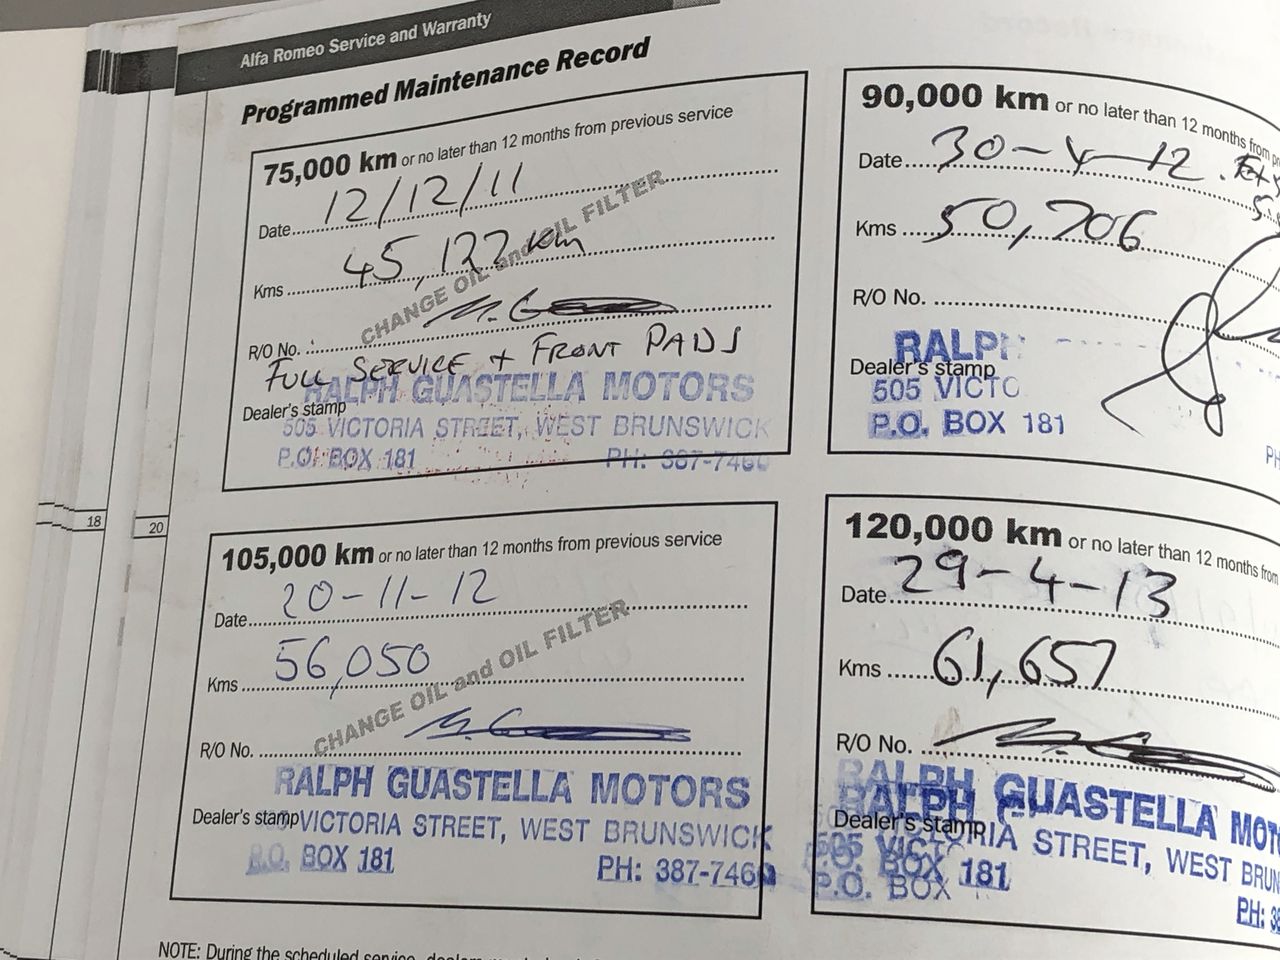 Alfa Romeo Service and Warranty
Programmed Maintenance Record
75,000 km or no later than 12 months from previous service
Date 12/12/11
Kms 45,122 km
CHANGE OIL and OIL FILTER
R/O No.
FULL SERVICE + FRONT PADS
RALPH GUASTELLA MOTORS
Dealer's stamp
505 VICTORIA STREET, WEST BRUNSWICK
P.O. BOX 181 PH: 387-7460
90,000 km or no later than 12 months from
Date 30-4-12
Kms 50,706
R/O No.
RALPH
Dealer's stamp
505 VICTO
P.O. BOX 181
PH
105,000 km or no later than 12 months from previous service
Date 20-11-12
Kms 56,050
CHANGE OIL and OIL FILTER
R/O No.
RALPH GUASTELLA MOTORS
Dealer's stamp VICTORIA STREET, WEST BRUNSWICK
P.O. BOX 181 PH: 387-7460
120,000 km or no later than 12 months from
Date 29-4-13
Kms 61,657
R/O No.
RALPH GUASTELLA MOT
RALPH G
Dealer's stamp RIA STREET, WEST BRUN
505 VICT
P.O. BOX 181
P.O. BOX
PH: 3
18
20
NOTE: During the scheduled service, dealers